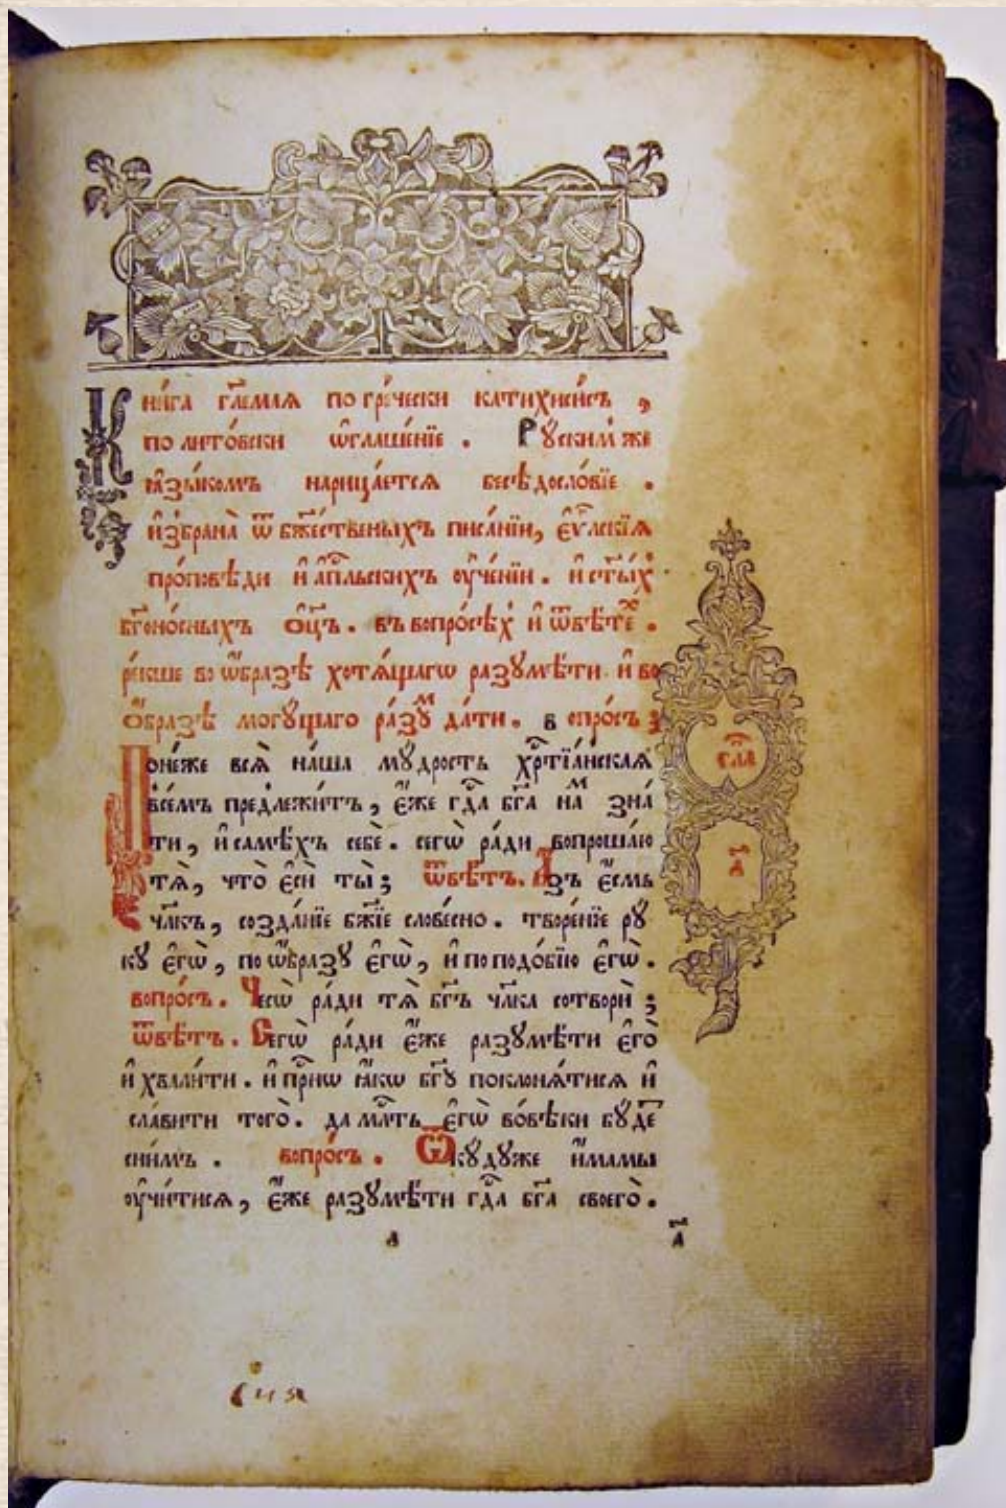 Кни́га гл҃емая по гре́чески катихиси́съ ,
по лито́вски ѡ҆глаше́нїе . Ру́ским же
ꙗ҆зы́комъ нарица́етсѧ бесѣдосло́вїе .
и҆збрана̀ ѿ бж҃е́ственыхъ писа́нїи, є҆ѵⷢ҇лскїѧ
про́повѣди и҆ а҆пⷭ҇льскихъ ᲂу҆че́нїи . и҆ ст҃ы́хъ
бг҃оно́сныхъ ѻ҆ц҃ъ . въ вопро́сѣхъ и҆ ѿвѣ́теⷯ .
ре́кше во ѡ҆́бразѣ хотѧ́щагѡ разꙋмѣ́ти и҆ во
ѻ҆́бразѣ могꙋ́щаго ра́зꙋⷨ да́ти . вопро́съ
Поне́же всѧ̀ на́ша мꙋ́дрость хрⷭ҇тїа́нскаѧ
всѣ́мъ предлежи́тъ , є҆́же гдⷭ҇а бг҃а наⷨ зна́
ти , и҆ самѣ́хъ себѐ . сегѡ̀ ра́ди вопроша́ю
тѧ̀ , что̀ є҆сѝ ты̀ ; ѿвѣ́тъ . А҆́зъ є҆́смь
чл҃къ , созда́нїе бж҃їе слове́сно . творе́нїе рꙋ
кꙋ̀ є҆гѡ̀ , по ѡ҆́бразꙋ є҆гѡ̀ , и҆ по подо́бїю є҆гѡ̀ .
вопро́съ . Чесѡ̀ ра́ди тѧ̀ бг҃ъ чл҃ка сотворѝ ;
ѿвѣ́тъ . Сегѡ̀ ра́ди є҆́же разꙋмѣ́ти є҆го̀
и҆ хвали́ти . и҆ при́снѡ ꙗ҆́кѡ бг҃ꙋ поклонѧ́тисѧ и҆
сла́вити того̀ . да млⷭ҇ть є҆гѡ̀ во́вѣки бꙋ́деⷮ
сни́мъ . вопро́съ . Ѿкꙋ́дꙋже и҆́мамы
ᲂу҆чи́тисѧ , є҆́же разꙋмѣ́ти гдⷭ҇а бг҃а своего̀ .
глⷡ҇а
а҃
а҃
сия